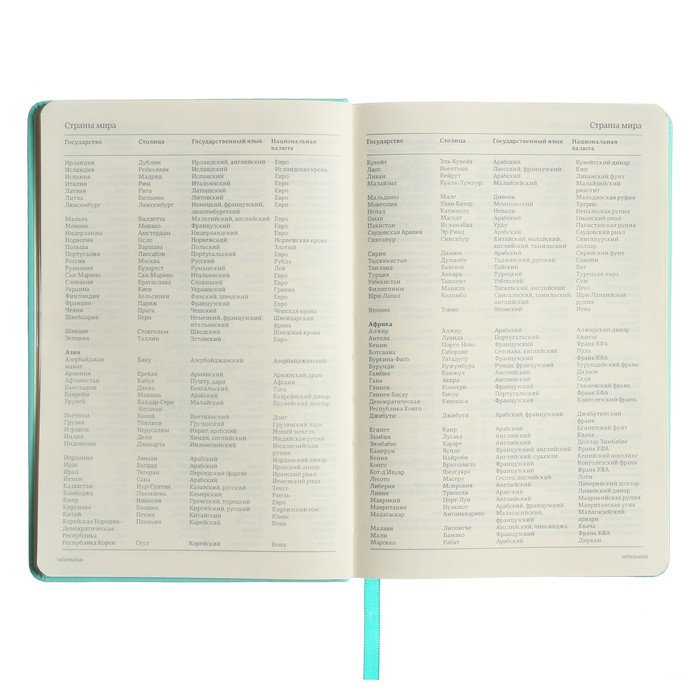 Страны мира
Государство Столица Государственный язык Национальная
валюта
Ирландия Дублин Ирландский, английский Евро
Исландия Рейкьявик Исландский Исландская крона
Испания Мадрид Испанский Евро
Италия Рим Итальянский Евро
Латвия Рига Латышский Евро
Литва Вильнюс Литовский Евро
Люксембург Люксембург Немецкий, французский, Евро
люксембургский
Мальта Валлетта Мальтийский, английский Евро
Монако Монако Французский Евро
Нидерланды Амстердам Нидерландский Евро
Норвегия Осло Норвежский Норвежская крона
Польша Варшава Польский Злотый
Португалия Лиссабон Португальский Евро
Россия Москва Русский Рубль
Румыния Бухарест Румынский Лей
Сан-Марино Сан-Марино Итальянский Евро
Словакия Братислава Словацкий Евро
Украина Киев Украинский Гривна
Финляндия Хельсинки Финский, шведский Евро
Франция Париж Французский Евро
Чехия Прага Чешский Чешская крона
Швейцария Берн Немецкий, французский, Швейцарский
итальянский франк
Швеция Стокгольм Шведский Шведская крона
Эстония Таллин Эстонский Евро
Азия
Азербайджан Баку Азербайджанский Азербайджанский
манат
Армения Ереван Армянский Армянский драм
Афганистан Кабул Пушту, дари Афгани
Бангладеш Дакка Бенгальский Така
Бахрейн Манама Арабский Бахрейнский динар
Бруней Бандар-Сери Малайский Брунейский доллар
-Бегаван
Вьетнам Ханой Вьетнамский Донг
Грузия Тбилиси Грузинский Грузинский лари
Израиль Иерусалим Иврит, арабский Новый шекель
Индия Дели Хинди, английский Индийская рупия
Индонезия Джакарта Индонезийский Индонезийская
рупия
Иордания Амман Арабский Иорданский динар
Ирак Багдад Арабский Иракский динар
Иран Тегеран Персидский (фарси) Иранский риал
Йемен Сана Арабский Йеменский риал
Казахстан Нур-Султан Казахский, русский Тенге
Камбоджа Пномпень Кхмерский Риель
Кипр Никосия Греческий, турецкий Евро
Киргизия Бишкек Киргизский, русский Киргизский сом
Китай Пекин Китайский Юань
Корейская Народно- Пхеньян Корейский Вона
Демократическая
Республика
Республика Корея Сеул Корейский Вона
information
Страны мира
Государство Столица Государственный язык Национальная
валюта
Кувейт Эль-Кувейт Арабский Кувейтский динар
Лаос Вьентьян Лаосский, французский Кип
Ливан Бейрут Арабский Ливанский фунт
Малайзия Куала-Лумпур Малайзийский Малайзийский
ринггит
Мальдивы Мале Дивехи Мальдивская руфия
Монголия Улан-Батор Монгольский Тугрик
Непал Катманду Непали Непальская рупия
Оман Маскат Арабский Оманский риал
Пакистан Исламабад Урду Пакистанская рупия
Саудовская Аравия Эр-Рияд Арабский Саудовский риял
Сингапур Сингапур Китайский, малайский, Сингапурский
английский, тамильский доллар
Сирия Дамаск Арабский Сирийский фунт
Таджикистан Душанбе Таджикский, русский Сомони
Таиланд Бангкок Тайский Бат
Турция Анкара Турецкий Турецкая лира
Узбекистан Ташкент Узбекский Сум
Филиппины Манила Тагальский, английский Песо
Шри-Ланка Коломбо Сингальский, тамильский, Шри-Ланкийская
английский рупия
Япония Токио Японский Иена
Африка
Алжир Алжир Арабский Алжирский динар
Ангола Луанда Португальский Кванза
Бенин Порто-Ново Французский Франк КФА
Ботсвана Габороне Сетсвана, английский Пула
Буркина-Фасо Уагадугу Французский Франк КФА
Бурунди Бужумбура Рунди, французский Бурундийский франк
Гамбия Банжул Английский Даласи
Гана Аккра Английский Седи
Гвинея Конакри Французский Гвинейский франк
Гвинея-Бисау Бисау Португальский Франк КФА
Демократическая Киншаса Французский Конголезский франк
Республика Конго
Джибути Джибути Арабский, французский Джибутийский
франк
Египет Каир Арабский Египетский фунт
Замбия Лусака Английский Квача
Зимбабве Хараре Английский Доллар Зимбабве
Камерун Яунде Французский, английский Франк КФА
Кения Найроби Английский, суахили Кенийский шиллинг
Конго Браззавиль Французский Конголезский франк
Кот-д'Ивуар Ямусукро Французский Франк КФА
Лесото Масеру Сесото, английский Лоти
Либерия Монровия Английский Либерийский доллар
Ливия Триполи Арабский Ливийский динар
Маврикий Порт-Луи Английский Маврикийская рупия
Мавритания Нуакшот Арабский, французский Мавританская угия
Мадагаскар Антананариву Малагасийский, Малагасийский
французский ариари
Малави Лилонгве Английский, чиньянджа Квача
Мали Бамако Французский Франк КФА
Марокко Рабат Арабский Дирхам
information